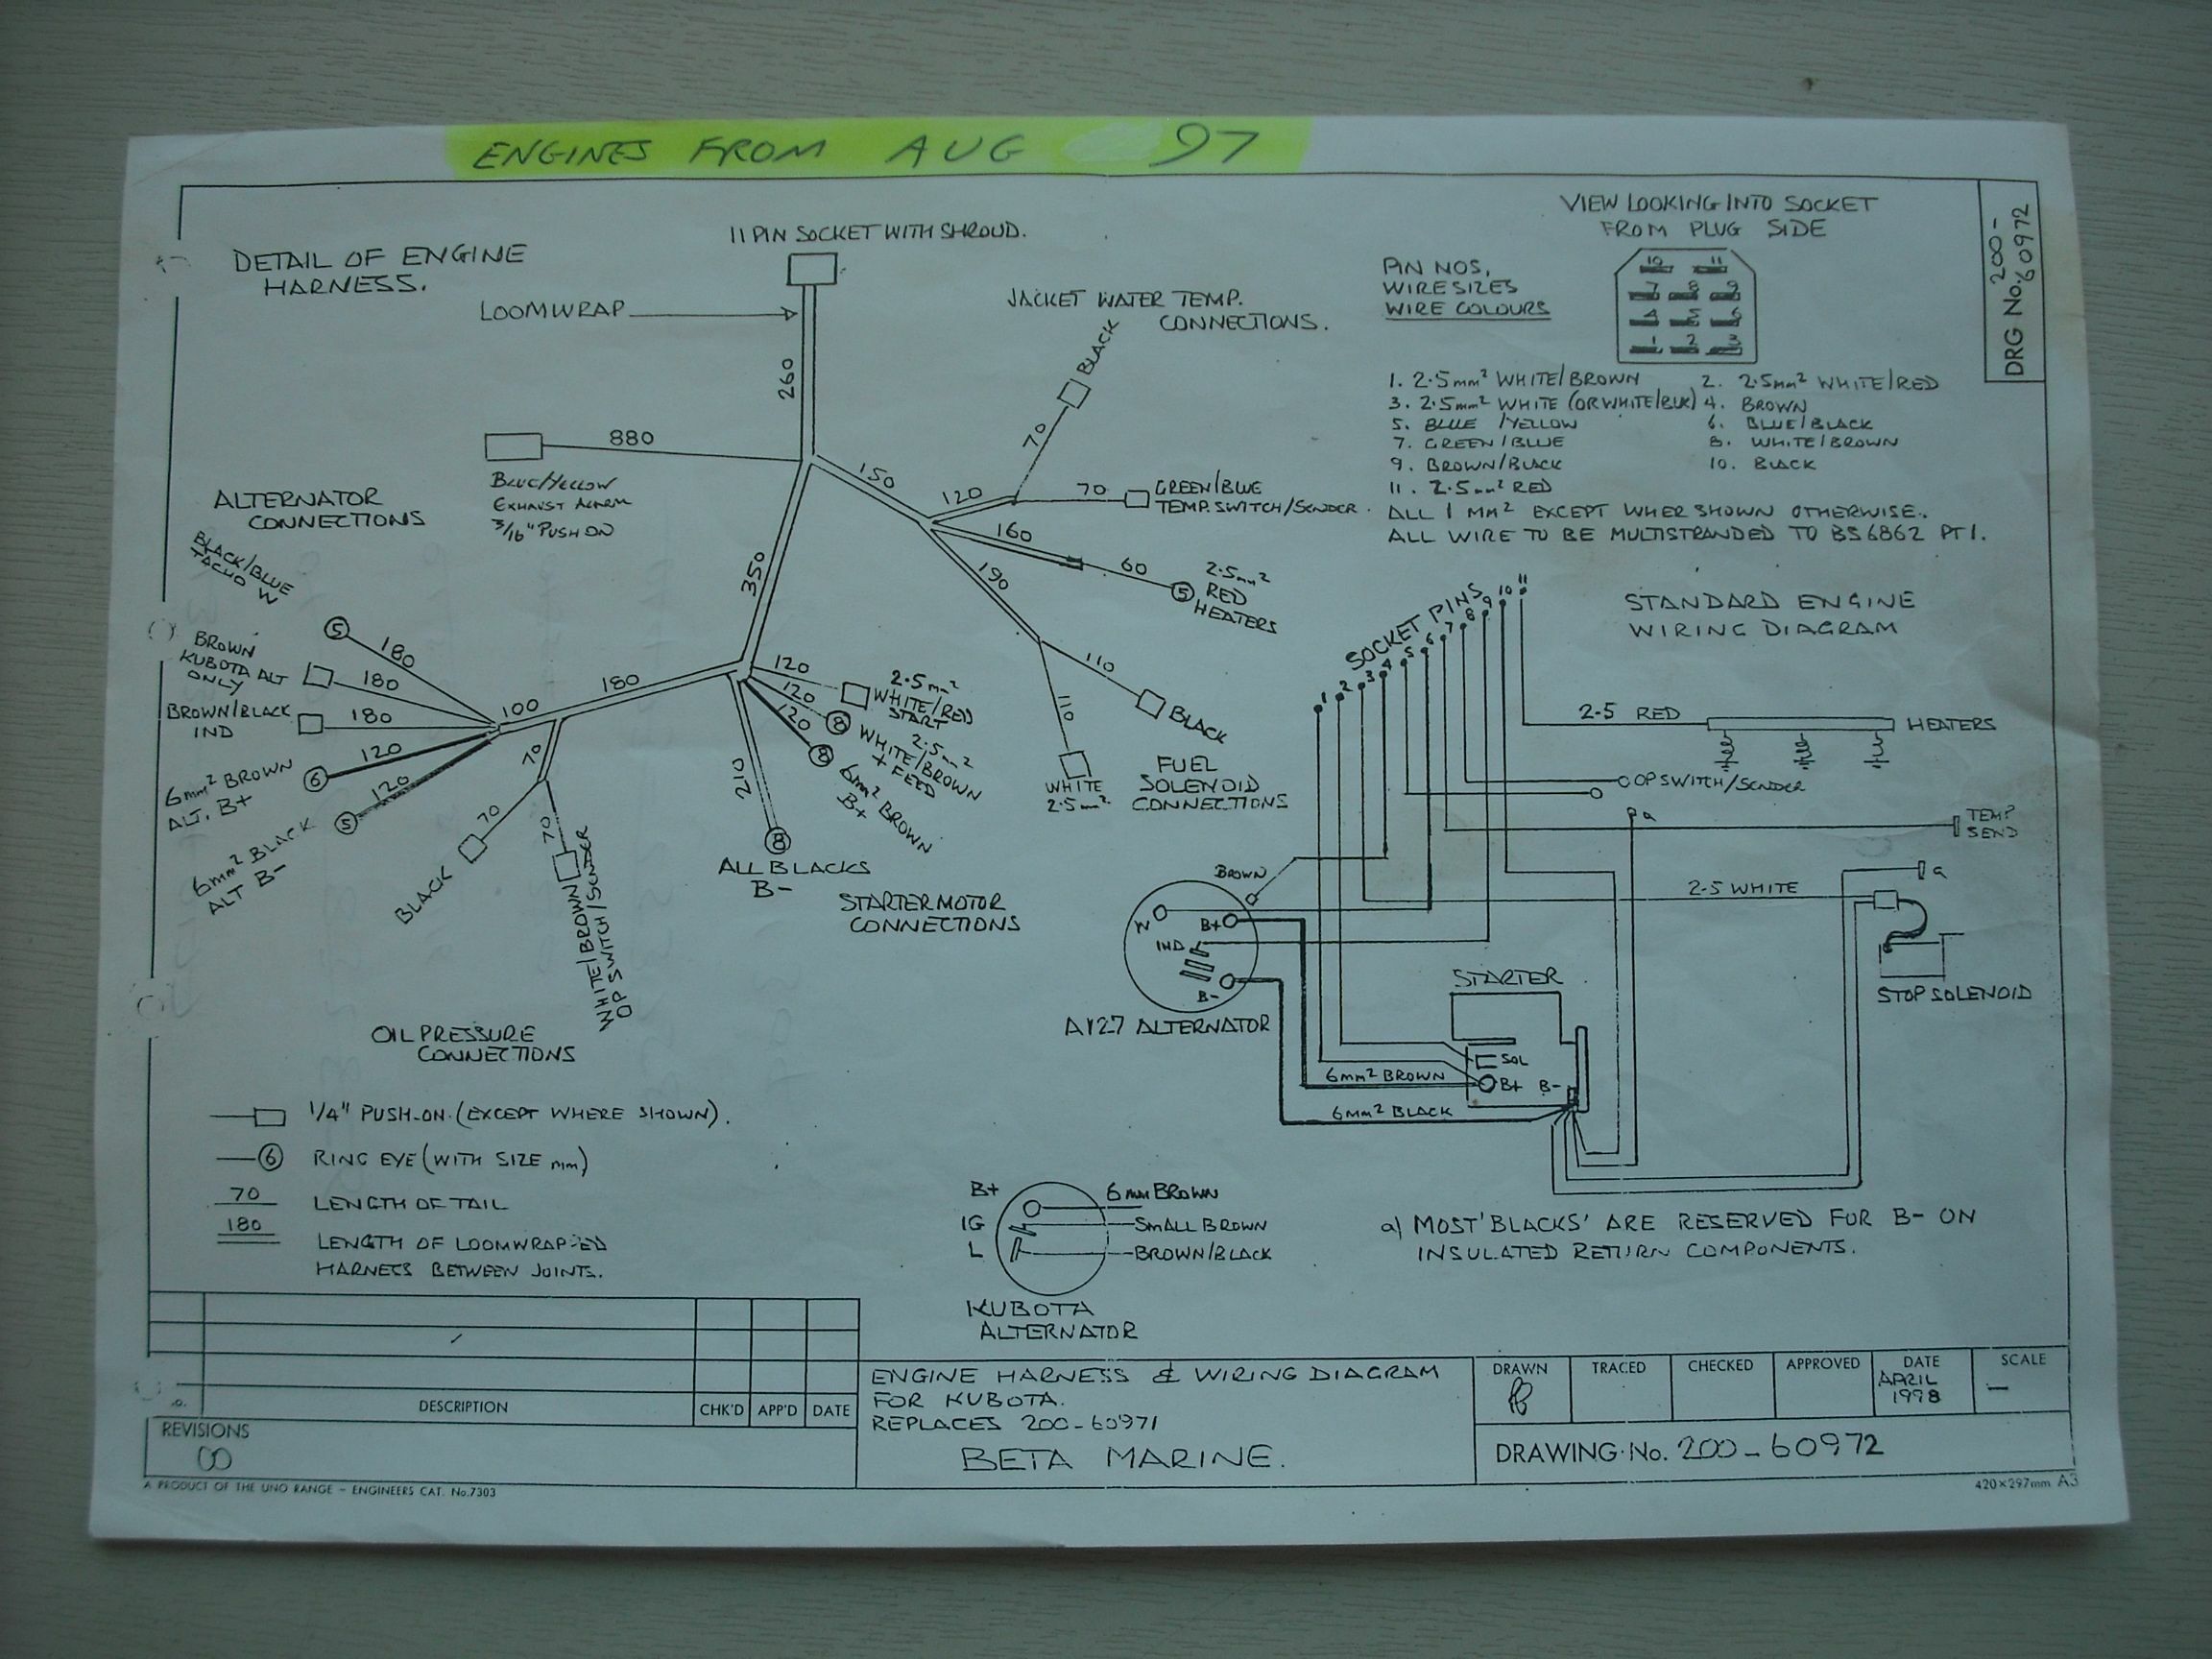 ENGINES FROM AUG 97
DETAIL OF ENGINE
HARNESS.
11 PIN SOCKET WITH SHROUD.
LOOMWRAP
260
JACKET WATER TEMP.
CONNECTIONS.
BLACK
70
880
BLUE/YELLOW
EXHAUST ALARM
3/16" PUSH ON
150
120
70
GREEN/BLUE
TEMP. SWITCH/SENDER.
160
60
5
2.5mm²
RED
HEATERS
190
110
BLACK
110
WHITE
2.5mm²
FUEL
SOLENOID
CONNECTIONS
350
ALTERNATOR
CONNECTIONS
BLACK/BLUE
TACHO W
5
180
BROWN
KUBOTA ALT
ONLY
180
BROWN/BLACK
IND
180
6mm² BROWN
ALT. B+
6
120
6mm² BLACK
ALT B-
5
120
100
180
70
70
BLACK
70
WHITE/BROWN
OP SWITCH/SENDER
OIL PRESSURE
CONNECTIONS
120
2.5mm²
WHITE/RED
START
120
8
2.5mm²
WHITE/BROWN
+ FEED
120
8
6mm² BROWN
B+
210
8
ALL BLACKS
B-
STARTER MOTOR
CONNECTIONS
1/4" PUSH-ON (EXCEPT WHERE SHOWN).
6
RING EYE (WITH SIZE mm)
70
LENGTH OF TAIL
180
LENGTH OF LOOMWRAP-ED
HARNESS BETWEEN JOINTS.
VIEW LOOKING INTO SOCKET
FROM PLUG SIDE
PIN NOS,
WIRE SIZES
WIRE COLOURS
10 11
7 8 9
4 5 6
1 2 3
1. 2.5mm² WHITE/BROWN 2. 2.5mm² WHITE/RED
3. 2.5mm² WHITE (OR WHITE/BLK) 4. BROWN
5. BLUE /YELLOW 6. BLUE/BLACK
7. GREEN/BLUE 8. WHITE/BROWN
9. BROWN/BLACK 10. BLACK
11. 2.5mm² RED
ALL 1 MM² EXCEPT WHER SHOWN OTHERWISE.
ALL WIRE TO BE MULTISTRANDED TO BS6862 PT1.
DRG No. 200-
60972
STANDARD ENGINE
WIRING DIAGRAM
SOCKET PINS
1 2 3 4 5 6 7 8 9 10 11
2-5 RED
HEATERS
OP SWITCH/SENDER
a
TEMP
SEND
a
2-5 WHITE
STOP SOLENOID
BROWN
W
B+
IND
B-
A127 ALTERNATOR
STARTER
SOL
B+ B-
6mm² BROWN
6mm² BLACK
B+ 6mm BROWN
IG SMALL BROWN
L BROWN/BLACK
KUBOTA
ALTERNATOR
a) MOST 'BLACKS' ARE RESERVED FOR B- ON
INSULATED RETURN COMPONENTS.
DESCRIPTION CHK'D APP'D DATE
REVISIONS
ENGINE HARNESS & WIRING DIAGRAM
FOR KUBOTA.
REPLACES 200-60971
BETA MARINE.
DRAWN TRACED CHECKED APPROVED DATE SCALE
APRIL
1998
DRAWING No. 200-60972
A PRODUCT OF THE UNO RANGE – ENGINEERS CAT. No.7303
420×297mm A3